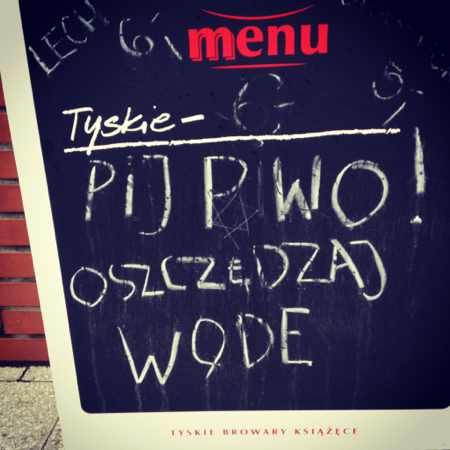 menu
LECH 6
6 5
Tyskie –
PIJ PIWO!
OSZCZĘDZAJ
WODE
TYSKIE BROWARY KSIĄŻĘCE